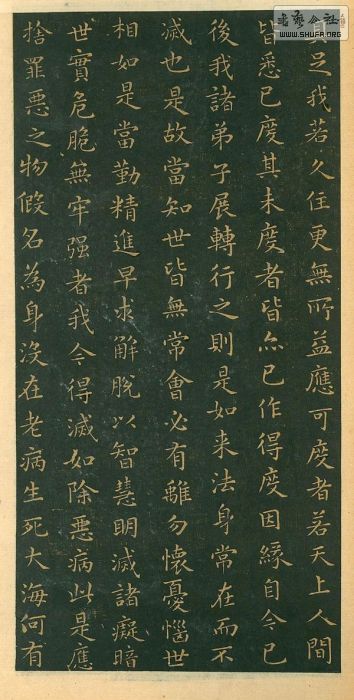 WWW.SHUFA.ORG
具足我若久住更無所益應可度者若天上人間
皆悉已度其未度者皆亦已作得度因緣自今已
後我諸弟子展轉行之則是如来法身常在而不
滅也是故當知世皆無常會必有離勿懷憂惱世
相如是當勤精進早求解脫以智慧明滅諸癡暗
世實危脆無牢强者我今得滅如除惡病此是應
捨罪惡之物假名為身沒在老病生死大海何有